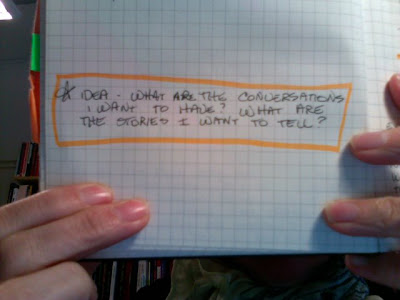 IDEA - WHAT ARE THE CONVERSATIONS
I WANT TO HAVE? WHAT ARE
THE STORIES I WANT TO TELL?